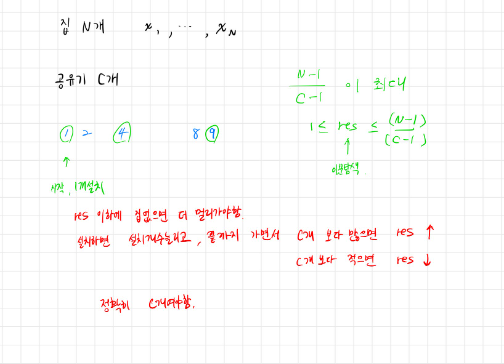 집 N개 x₁, ..., x_N
공유기 C개
N-1 / C-1 이 최대
1 ≤ res ≤ (N-1) / (C-1)
↑
이분탐색
① 2 ④ 8 ⑨
↑
시작, 1개설치
res 이하에 집없으면 더 멀리가야함.
설치하면 설치개수늘리고, 끝까지 가면서 C개 보다 많으면 res ↑
C개 보다 적으면 res ↓
정확히 C개여야함.